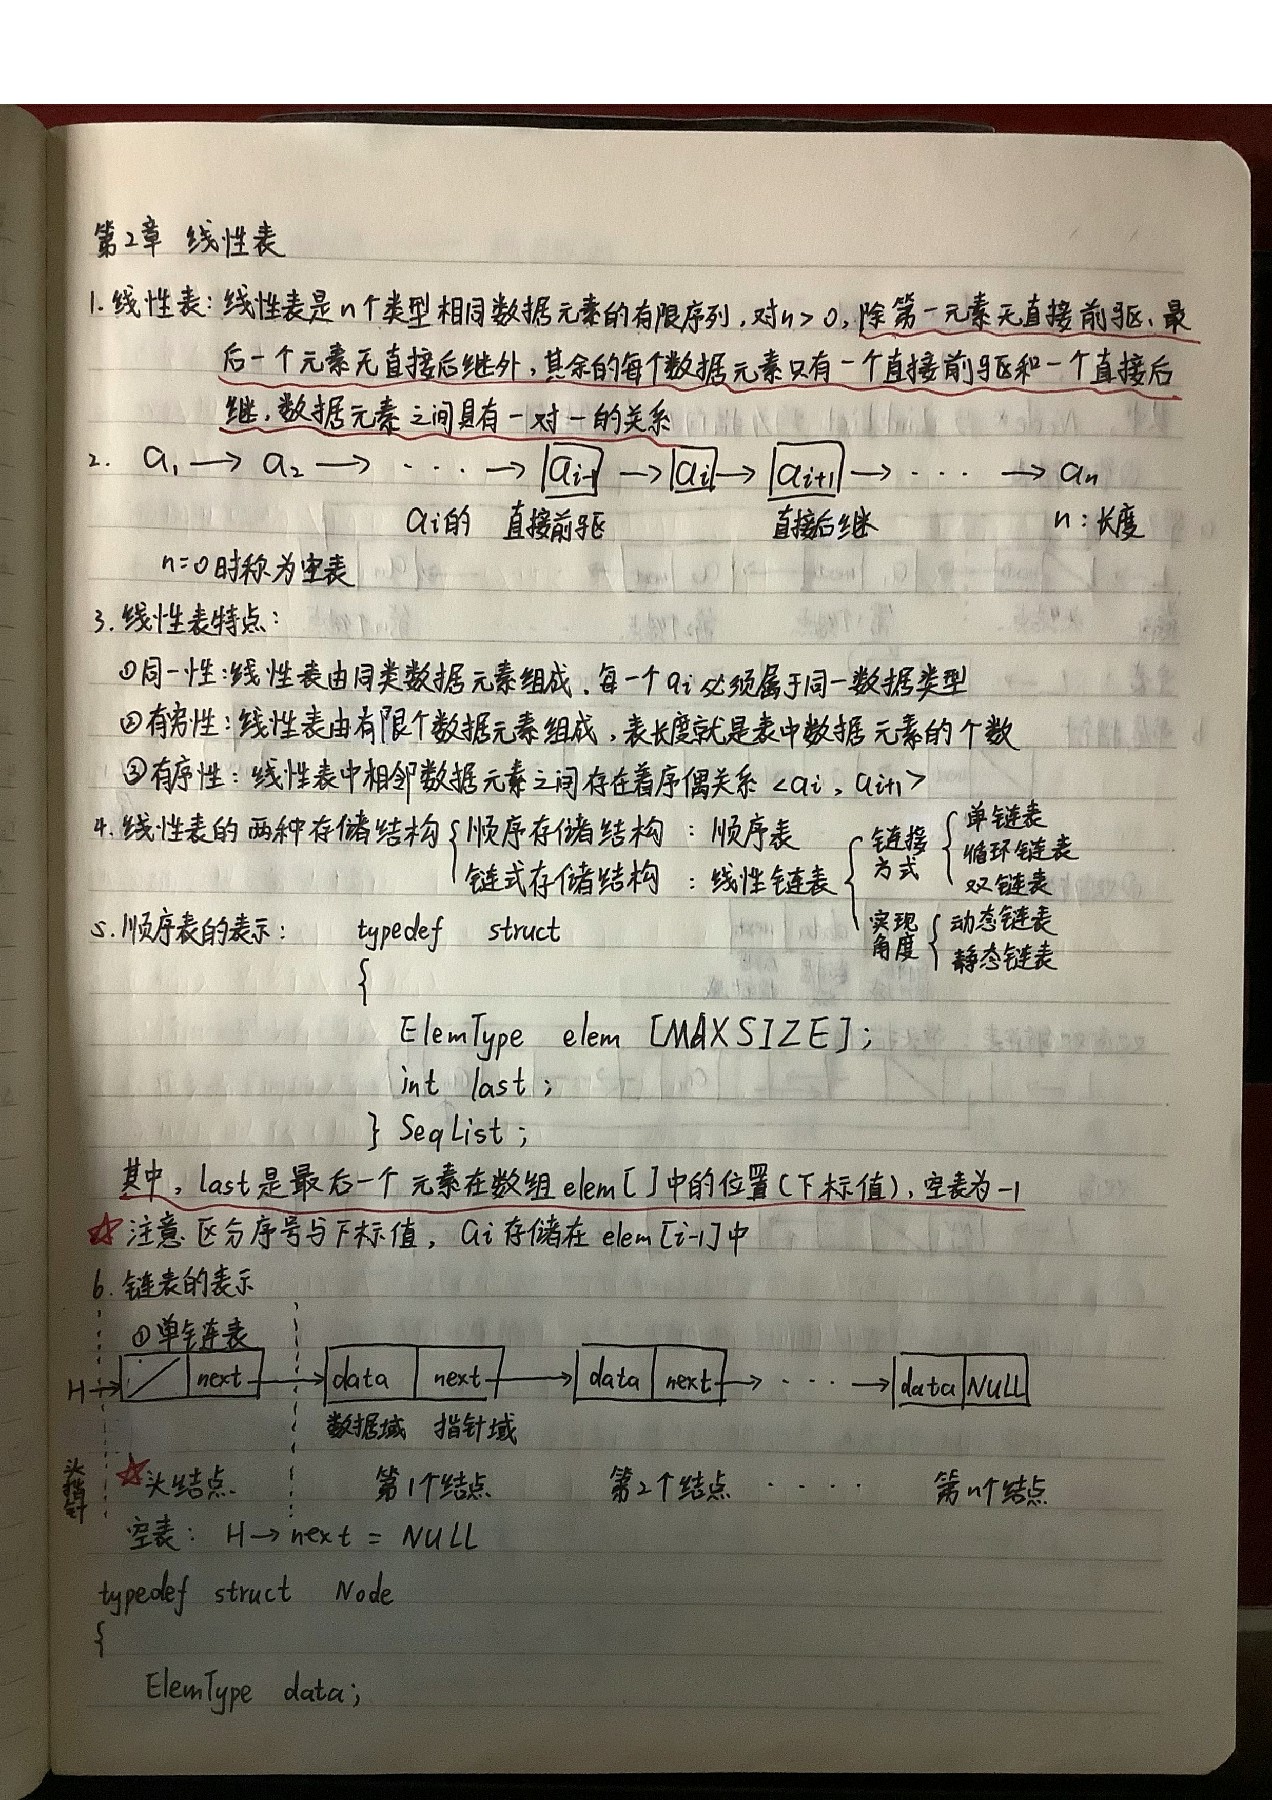 第2章 线性表
1. 线性表: 线性表是n个类型相同数据元素的有限序列, 对n>0, 除第一元素无直接前驱、最
后一个元素无直接后继外, 其余的每个数据元素只有一个直接前驱和一个直接后
继, 数据元素之间具有一对一的关系
2. a₁ → a₂ → ··· → aᵢ₋₁ → aᵢ → aᵢ₊₁ → ··· → aₙ
aᵢ的 直接前驱 直接后继 n:长度
n=0时称为空表
3. 线性表特点:
①同一性: 线性表由同类数据元素组成, 每一个aᵢ必须属于同一数据类型
②有穷性: 线性表由有限个数据元素组成, 表长度就是表中数据元素的个数
③有序性: 线性表中相邻数据元素之间存在着序偶关系<aᵢ, aᵢ₊₁>
4. 线性表的两种存储结构 { 顺序存储结构 : 顺序表
链式存储结构 : 线性链表 {
链接方式 {
单链表
循环链表
双链表
实现角度 {
动态链表
静态链表
5. 顺序表的表示: typedef struct
{
ElemType elem [MAXSIZE];
int last;
} SeqList;
其中, last是最后一个元素在数组elem[ ]中的位置(下标值), 空表为-1
☆注意区分序号与下标值, aᵢ存储在elem[i-1]中
6. 链表的表示
①单链表
H→ next → data next → data next → ··· → data NULL
数据域 指针域
头指针 ☆头结点 第1个结点 第2个结点 ····· 第n个结点
空表: H→next = NULL
typedef struct Node
{
ElemType data;